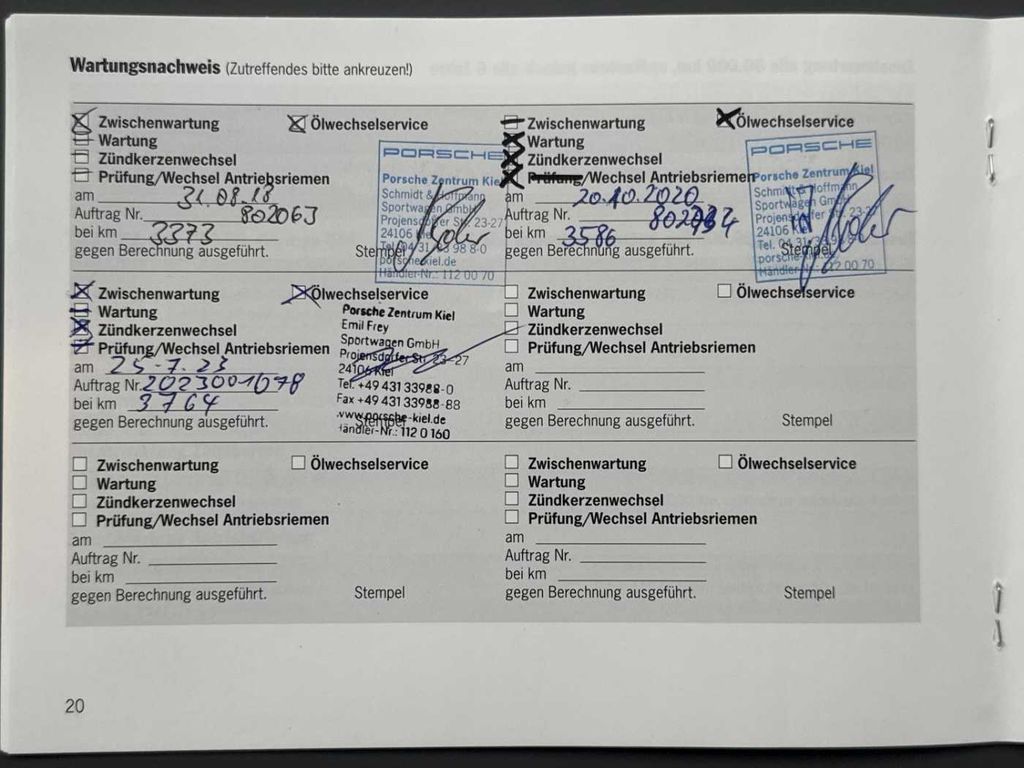 Wartungsnachweis (Zutreffendes bitte ankreuzen!)
Zwischenwartung Ölwechselservice
Wartung
Zündkerzenwechsel
Prüfung/Wechsel Antriebsriemen
am 31.08.18
Auftrag Nr. 802063
bei km 3373
gegen Berechnung ausgeführt. Stempel
PORSCHE
Porsche Zentrum Kiel
Schmidt & Hoffmann
Sportwagen GmbH
Projensdorfer Str. 23-27
24106 Kiel
Tel. 04 31/3 39 88-0
porsche-kiel.de
Händler-Nr.: 112 00 70
Zwischenwartung Ölwechselservice
Wartung
Zündkerzenwechsel
Prüfung/Wechsel Antriebsriemen
am 20.10.2020
Auftrag Nr.
bei km 3586
gegen Berechnung ausgeführt. Stempel
PORSCHE
Porsche Zentrum Kiel
Schmidt & Hoffmann
Sportwagen GmbH
Projensdorfer Str. 23-27
24106 Kiel
Tel. 04 31/3 39 88-0
porsche-kiel.de
Händler-Nr.: 112 00 70
Zwischenwartung Ölwechselservice
Wartung
Zündkerzenwechsel
Prüfung/Wechsel Antriebsriemen
am 25-7.23
Auftrag Nr. 2023001078
bei km 3764
gegen Berechnung ausgeführt. Stempel
Porsche Zentrum Kiel
Emil Frey
Sportwagen GmbH
Projensdorfer Str. 23-27
24106 Kiel
Tel. +49 431 33988-0
Fax +49 431 33988-88
www.porsche-kiel.de
Händler-Nr.: 112 0 160
Zwischenwartung Ölwechselservice
Wartung
Zündkerzenwechsel
Prüfung/Wechsel Antriebsriemen
am
Auftrag Nr.
bei km
gegen Berechnung ausgeführt. Stempel
Zwischenwartung Ölwechselservice
Wartung
Zündkerzenwechsel
Prüfung/Wechsel Antriebsriemen
am
Auftrag Nr.
bei km
gegen Berechnung ausgeführt. Stempel
Zwischenwartung Ölwechselservice
Wartung
Zündkerzenwechsel
Prüfung/Wechsel Antriebsriemen
am
Auftrag Nr.
bei km
gegen Berechnung ausgeführt. Stempel
20